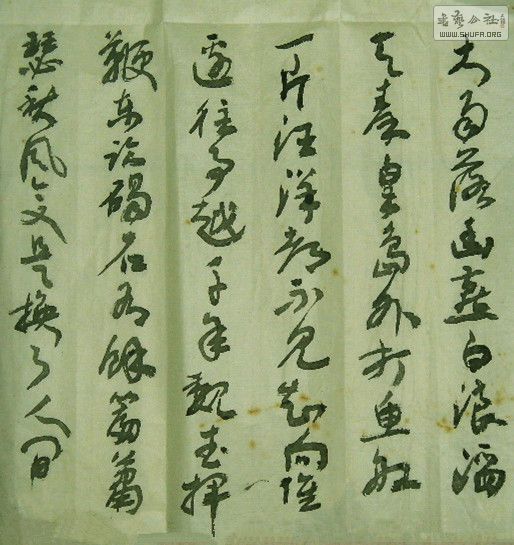 書藝公社
WWW.SHUFA.ORG
大雨落幽燕白浪滔
天秦皇島外打魚船
一片汪洋都不见知向誰
邊往事越千年魏武揮
鞭東临碣石有篇蕭
瑟秋風今又是換了人间